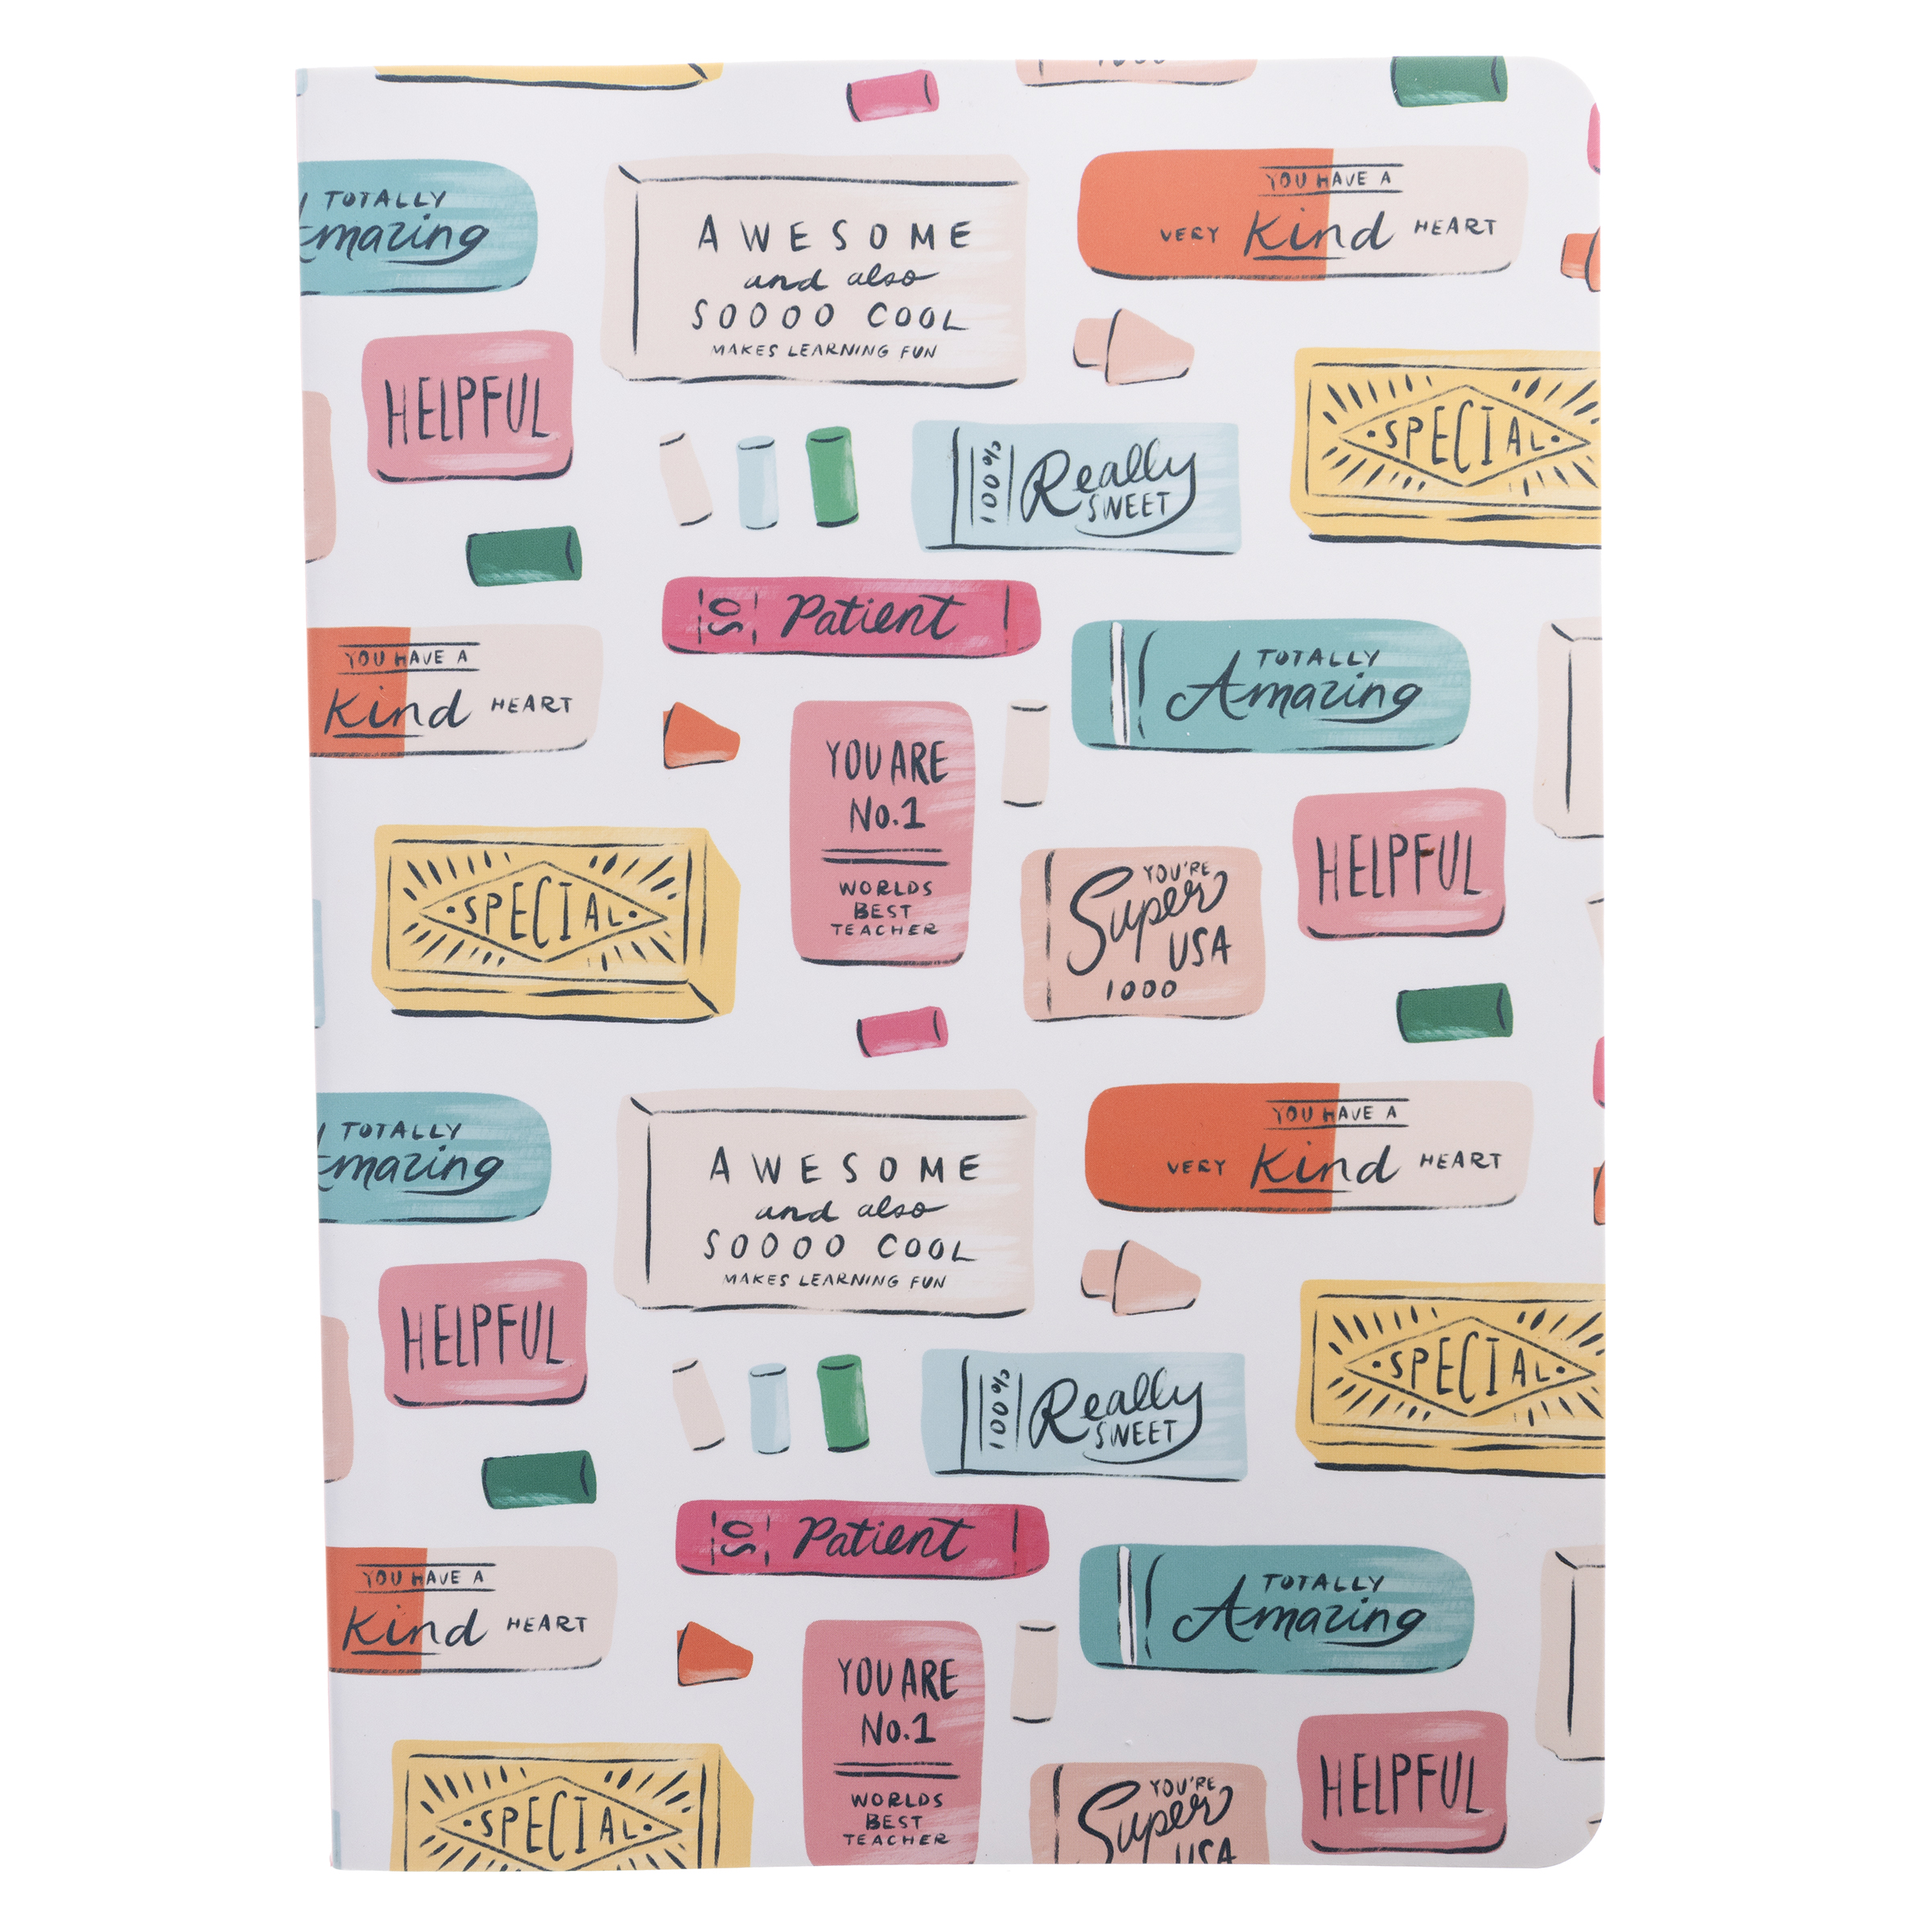 1000
TOTALLY
Amazing
AWESOME
and also
SOOOO COOL
MAKES LEARNING FUN
YOU HAVE A
VERY Kind HEART
HELPFUL
100%
Really
SWEET
SPECIAL
SO Patient
YOU HAVE A
Kind HEART
TOTALLY
Amazing
YOU ARE
No.1
WORLDS
BEST
TEACHER
SPECIAL
YOU'RE
Super
USA
1000
HELPFUL
TOTALLY
Amazing
AWESOME
and also
SOOOO COOL
MAKES LEARNING FUN
YOU HAVE A
VERY Kind HEART
HELPFUL
100%
Really
SWEET
SPECIAL
SO Patient
YOU HAVE A
Kind HEART
TOTALLY
Amazing
YOU ARE
No.1
WORLDS
BEST
TEACHER
SPECIAL
YOU'RE
Super
USA
HELPFUL